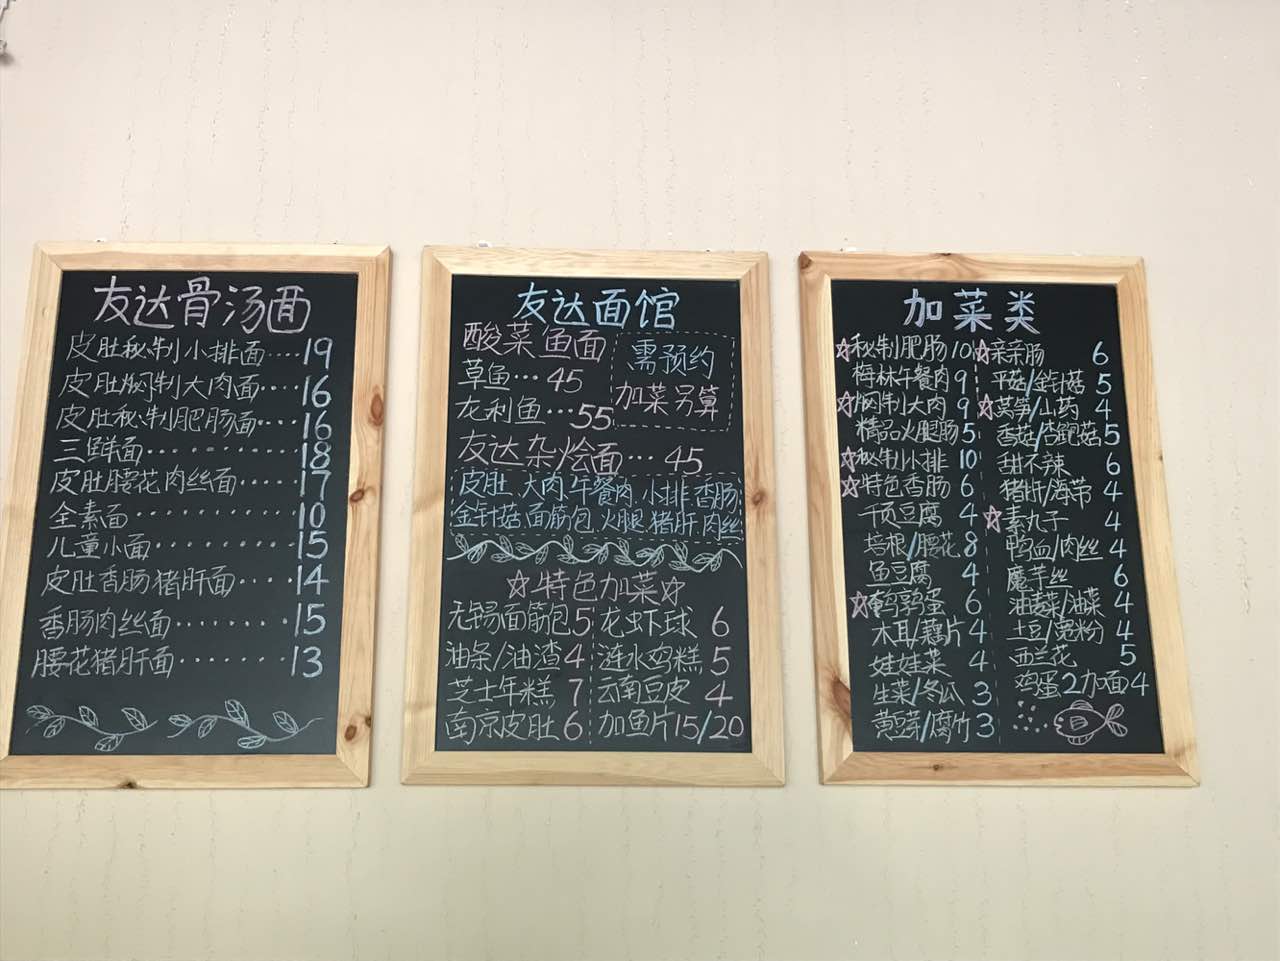 友达骨汤面
皮肚秘制小排面····19
皮肚焖制大肉面····16
皮肚秘制肥肠面····16
三鲜面··········18
皮肚腰花肉丝面·····17
全素面··········10
儿童小面·········15
皮肚香肠猪肝面····14
香肠肉丝面·······15
腰花猪肝面·······13
友达面馆
酸菜鱼面
草鱼···45
龙利鱼···55
需预约
加菜另算
友达杂烩面···45
皮肚、大肉、午餐肉、小排、香肠
金针菇、面筋包、火腿、猪肝、肉丝
☆特色加菜☆
无锡面筋包5 龙虾球 6
油条/油渣4 涟水鸡糕5
芝士年糕 7 云南豆皮 4
南京皮肚 6 加鱼片15/20
加菜类
☆秘制肥肠10 ☆亲亲肠 6
梅林午餐肉 9 平菇/金针菇 5
☆焖制大肉 9 ☆莴笋/山药 4
精品火腿肠5 香菇/杏鲍菇5
☆秘制小排 10 甜不辣 6
☆特色香肠 6 猪肝/海带 4
千页豆腐 4 ☆素丸子 4
培根/腰花 8 鸭血/肉丝 4
鱼豆腐 4 魔芋丝 6
☆鹌鹑蛋 6 油麦菜/油菜 4
木耳/藕片 4 土豆/宽粉 4
娃娃菜 4 西兰花 5
生菜/冬瓜 3 鸡蛋2加面4
黄豆芽/腐竹 3